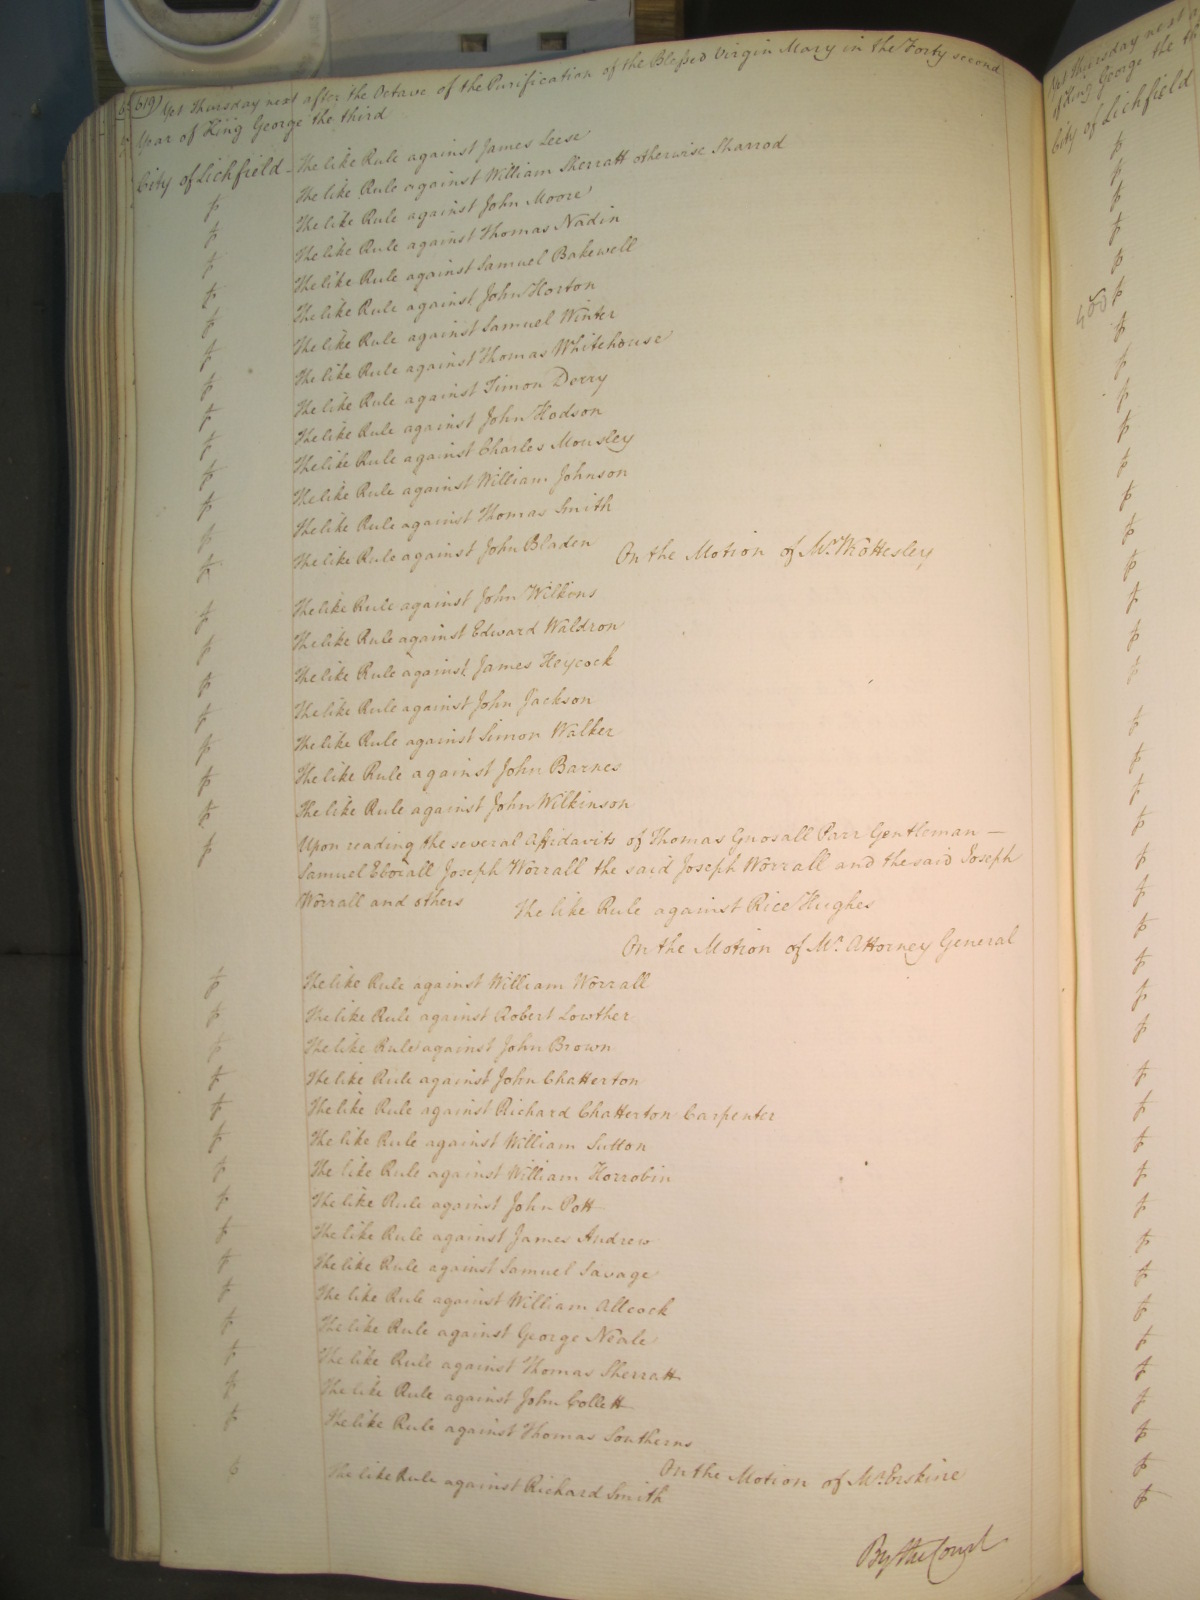 619 Yet Thursday next after the Octave of the Purification of the Blessed Virgin Mary in the Forty second
Year of King George the third
City of Lichfield - The like Rule against James Leese
The like Rule against William Sherratt otherwise Sharrod
The like Rule against John Moore
The like Rule against Thomas Nadin
The like Rule against Samuel Bakewell
The like Rule against John Horton
The like Rule against Samuel Winter
The like Rule against Thomas Whitehouse
The like Rule against Simon Derry
The like Rule against John Hodson
The like Rule against Charles Mousley
The like Rule against William Johnson
The like Rule against Thomas Smith
The like Rule against John Bladen On the Motion of Mr. Wottesley
The like Rule against John Wilkins
The like Rule against Edward Waldron
The like Rule against James Heycock
The like Rule against John Jackson
The like Rule against Simon Walker
The like Rule against John Barnes
The like Rule against John Wilkinson
Upon reading the several Affidavits of Thomas Gnosall Parr Gentleman —
Samuel Eborall Joseph Worrall the said Joseph Worrall and the said Joseph
Worrall and others The like Rule against Rice Hughes
On the Motion of Mr. Attorney General
The like Rule against William Worrall
The like Rule against Robert Lowther
The like Rule against John Brown
The like Rule against John Chatterton
The like Rule against Richard Chatterton Carpenter
The like Rule against William Sutton
The like Rule against William Horrobin
The like Rule against John Pott
The like Rule against James Andrew
The like Rule against Samuel Savage
The like Rule against William Allcock
The like Rule against George Neale
The like Rule against Thomas Sherratt
The like Rule against John Collett
The like Rule against Thomas Southerns
On the Motion of Mr. Erskine
The like Rule against Richard Smith
By the Court
Yet Thursday next
of King George the th
City of Lichfield